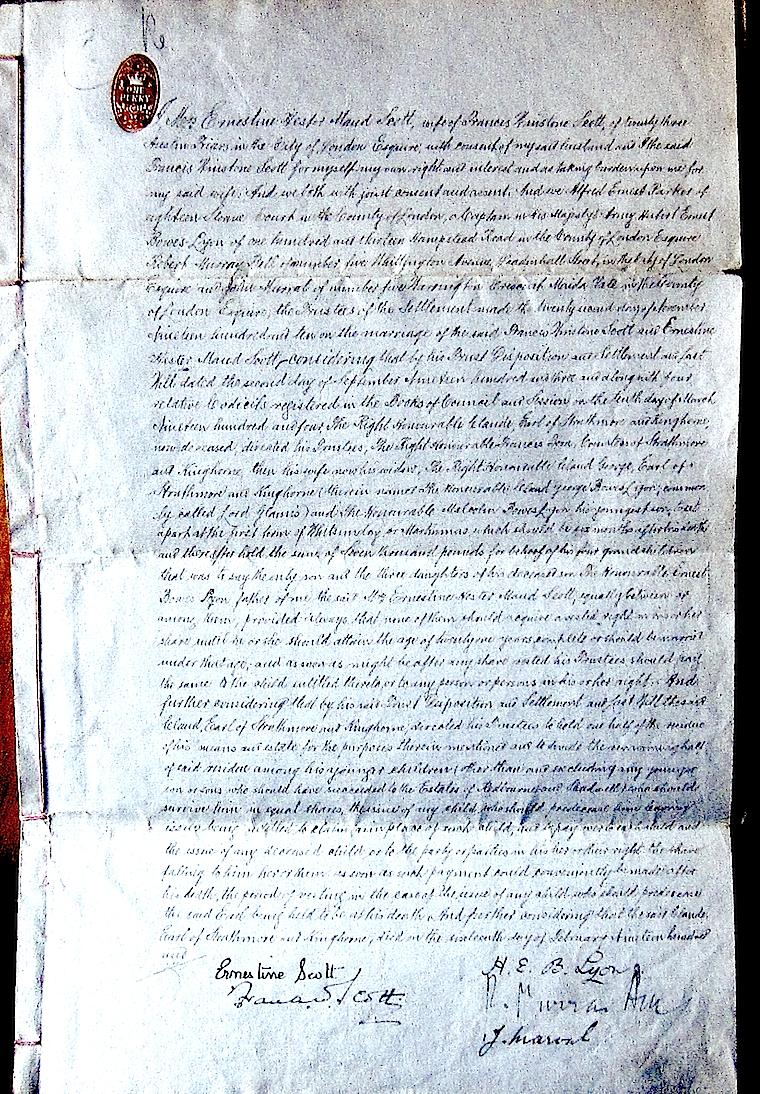 ONE PENNY
I Mrs Ernestine Hester Maud Scott, wife of Francis Winstone Scott, of twenty three
Austin Friars in the City of London Esquire, with consent of my said husband and I the said
Francis Winstone Scott for myself my own right and interest and as taking burden upon me for
my said wife; And we both with joint consent and assent; And we Alfred Ernest Parker of
eighteen Sloane Court in the County of London, a Captain in His Majesty's Army Hubert Ernest
Bowes Lyon of one hundred and thirteen Hampstead Road in the County of London Esquire
Robert Murray of number five Whittington Avenue, Leadenhall Street, in the City of London
Esquire and John of number five Crescent Maida Vale in the County
of London Esquire, the Trustees of the Settlement made the twenty second day of November
Nineteen hundred and ten on the marriage of the said Francis Winstone Scott and Ernestine
Hester Maud Scott, considering that by his Trust Disposition and Settlement and last
Will dated the second day of September Nineteen hundred and three and along with four
relative Codicils registered in the Books of Council and Session on the tenth day of March
Nineteen hundred and four The Right Honourable Claude, Earl of Strathmore and Kinghorne,
now deceased, directed his Trustees, The Right Honourable Frances Dora, Countess of Strathmore
and Kinghorne, then his wife now his widow, The Right Honourable Claud George, Earl of
Strathmore and Kinghorne (therein named the Honourable Claud George Bowes Lyon, common-
ly called Lord Glamis) and The Honourable Malcolm Bowes Lyon his youngest son, to set
apart at the first term of Whitsunday or Martinmas which should be six months after his death
and thereafter hold the sum of Seven thousand pounds for behoof of his four grandchildren
that was to say the only son and the three daughters of his deceased son The Honourable Ernest
Bowes Lyon father of me the said Mrs Ernestine Hester Maud Scott, equally between or
among them, provided always that none of them should acquire a vested right in his or her
share until he or she should attain the age of twenty one years complete or should be married
under that age; and as soon as might be after any share vested his Trustees should pay
the same to the child entitled thereto or to any person or persons in his or her right: And
further considering that by his said Trust Disposition and Settlement and last Will the said
Claud, Earl of Strathmore and Kinghorne, directed his Trustees to hold one half of the residue
of his means and estate for the purposes therein mentioned and to divide the remaining half
of said residue among his younger children (other than and excluding any younger
son or sons who should have succeeded to the Estates of and) who should
survive him in equal shares, the issue of any child who should predecease him leaving
issue being entitled to claim in place of such child, and to pay over to each child and
the issue of any deceased child or to the party or parties in his her or their right the share
falling to him her or them as soon as such payment could conveniently be made after
his death, the period of vesting in the case of the issue of any child who should predecease
the said Earl being held to be at his death; And further considering that the said Claude,
Earl of Strathmore and Kinghorne, died on the sixteenth day of February Nineteen hundred
and
Ernestine Scott
H. E. B. Lyon
Francis W Scott
R. Murray
J. Marral